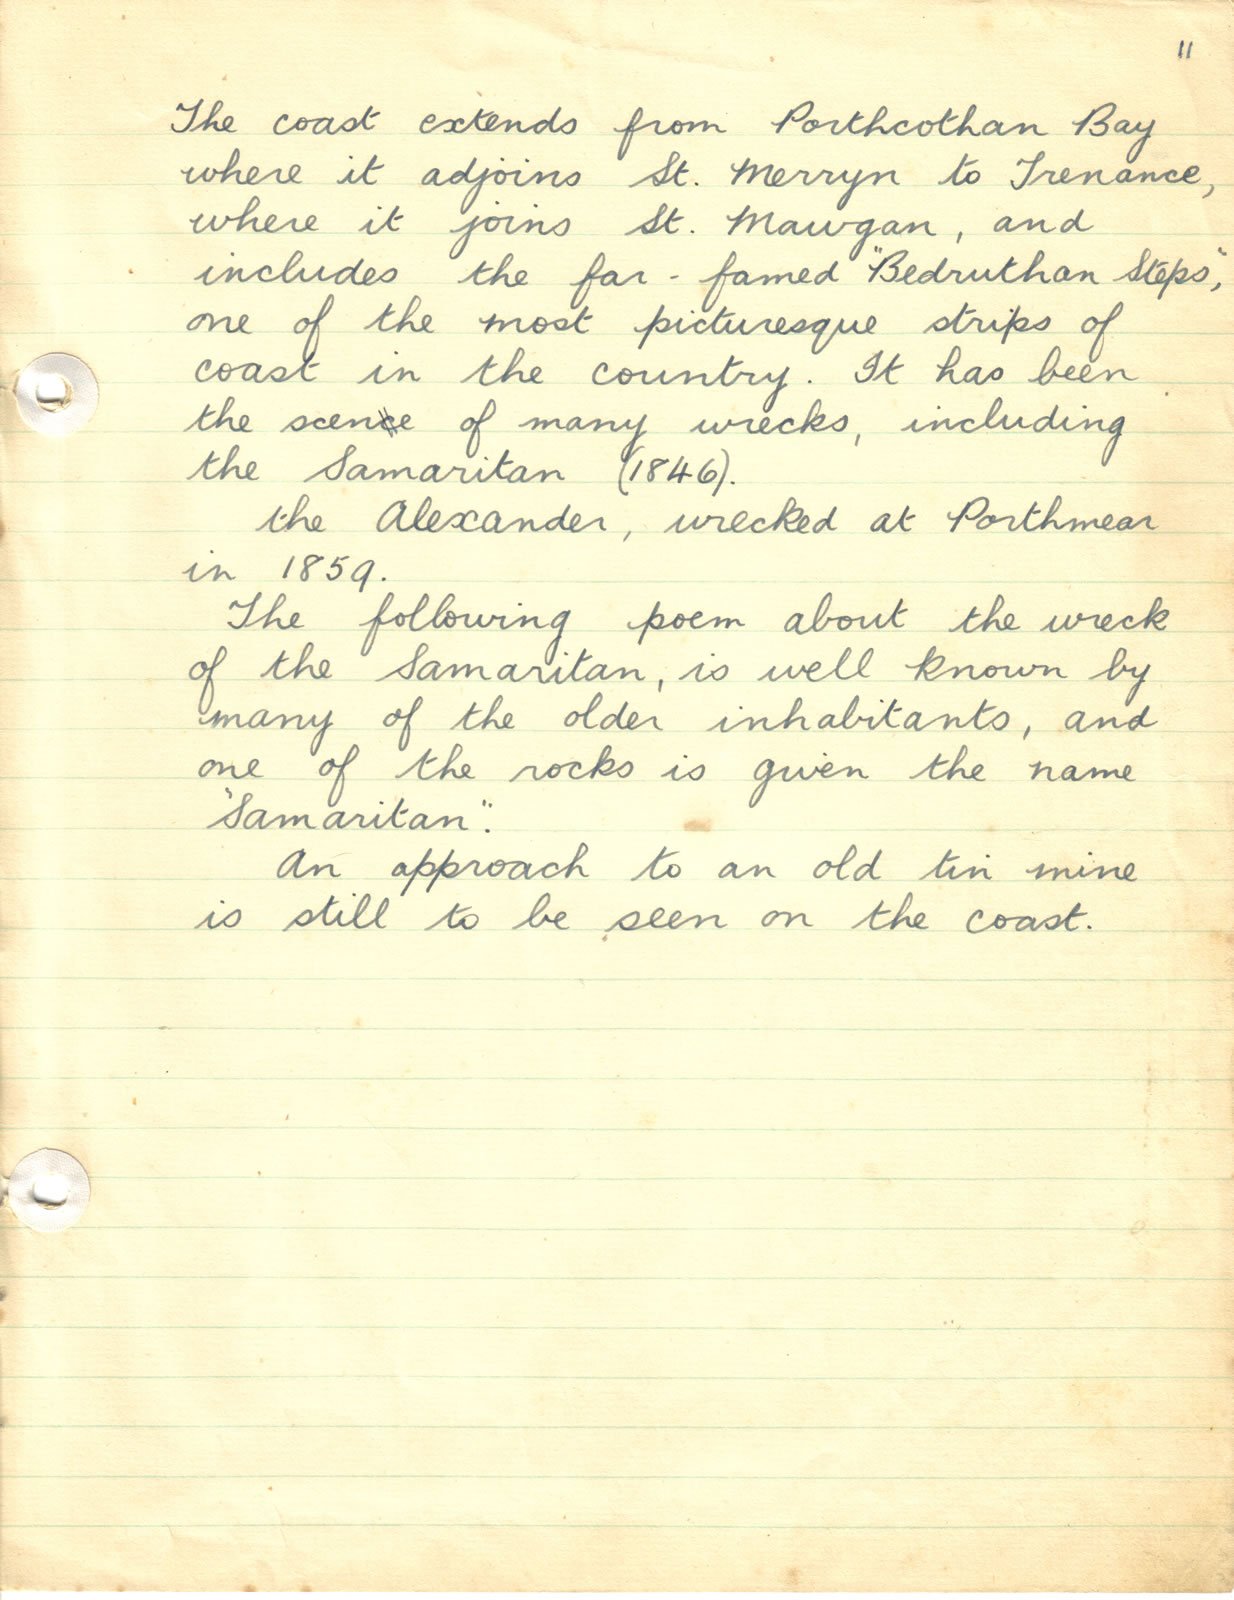 11
The coast extends from Porthcothan Bay
where it adjoins St. Merryn to Trenance,
where it joins St. Mawgan, and
includes the far - famed "Bedruthan Steps",
one of the most picturesque strips of
coast in the country. It has been
the scene of many wrecks, including
the Samaritan (1846).
the Alexander, wrecked at Porthmear
in 1859.
The following poem about the wreck
of the Samaritan, is well known by
many of the older inhabitants, and
one of the rocks is given the name
"Samaritan".
An approach to an old tin mine
is still to be seen on the coast.